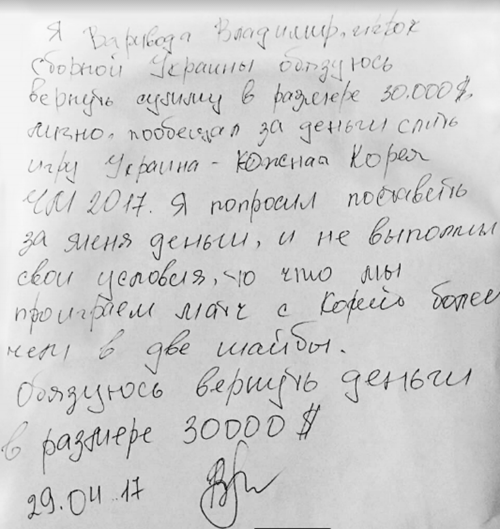 Я Варивода Владимир, игрок
сборной Украины обязуюсь
вернуть сумму в размере 30.000$,
лично. пообещал за деньги слить
игру Украина - Южная Корея
ЧМ 2017. Я попросил поставить
за меня деньги, и не выполнил
свои условия, что мы
проиграем матч с Кореей более
чем в две шайбы.
Обязуюсь вернуть деньги
в размере 30000$
29.04.17